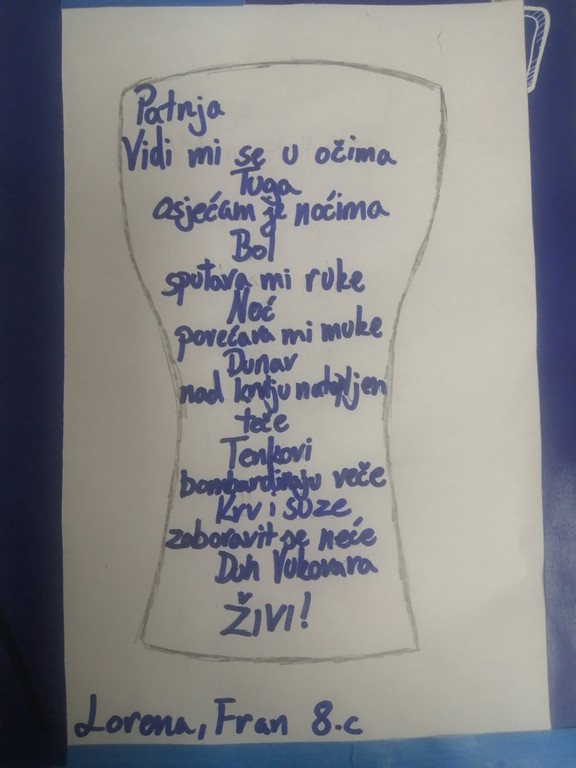 Patnja
Vidi mi se u očima
Tuga
osjećam je noćima
Bol
sputava mi ruke
Noć
povećava mi muke
Dunav
nad natopljen
teče
Tenkovi
bombardiraju veče
Krv i suze
zaboravit se neće
Duh Vukovara
ŽIVI!
Lorena, Fran 8.c